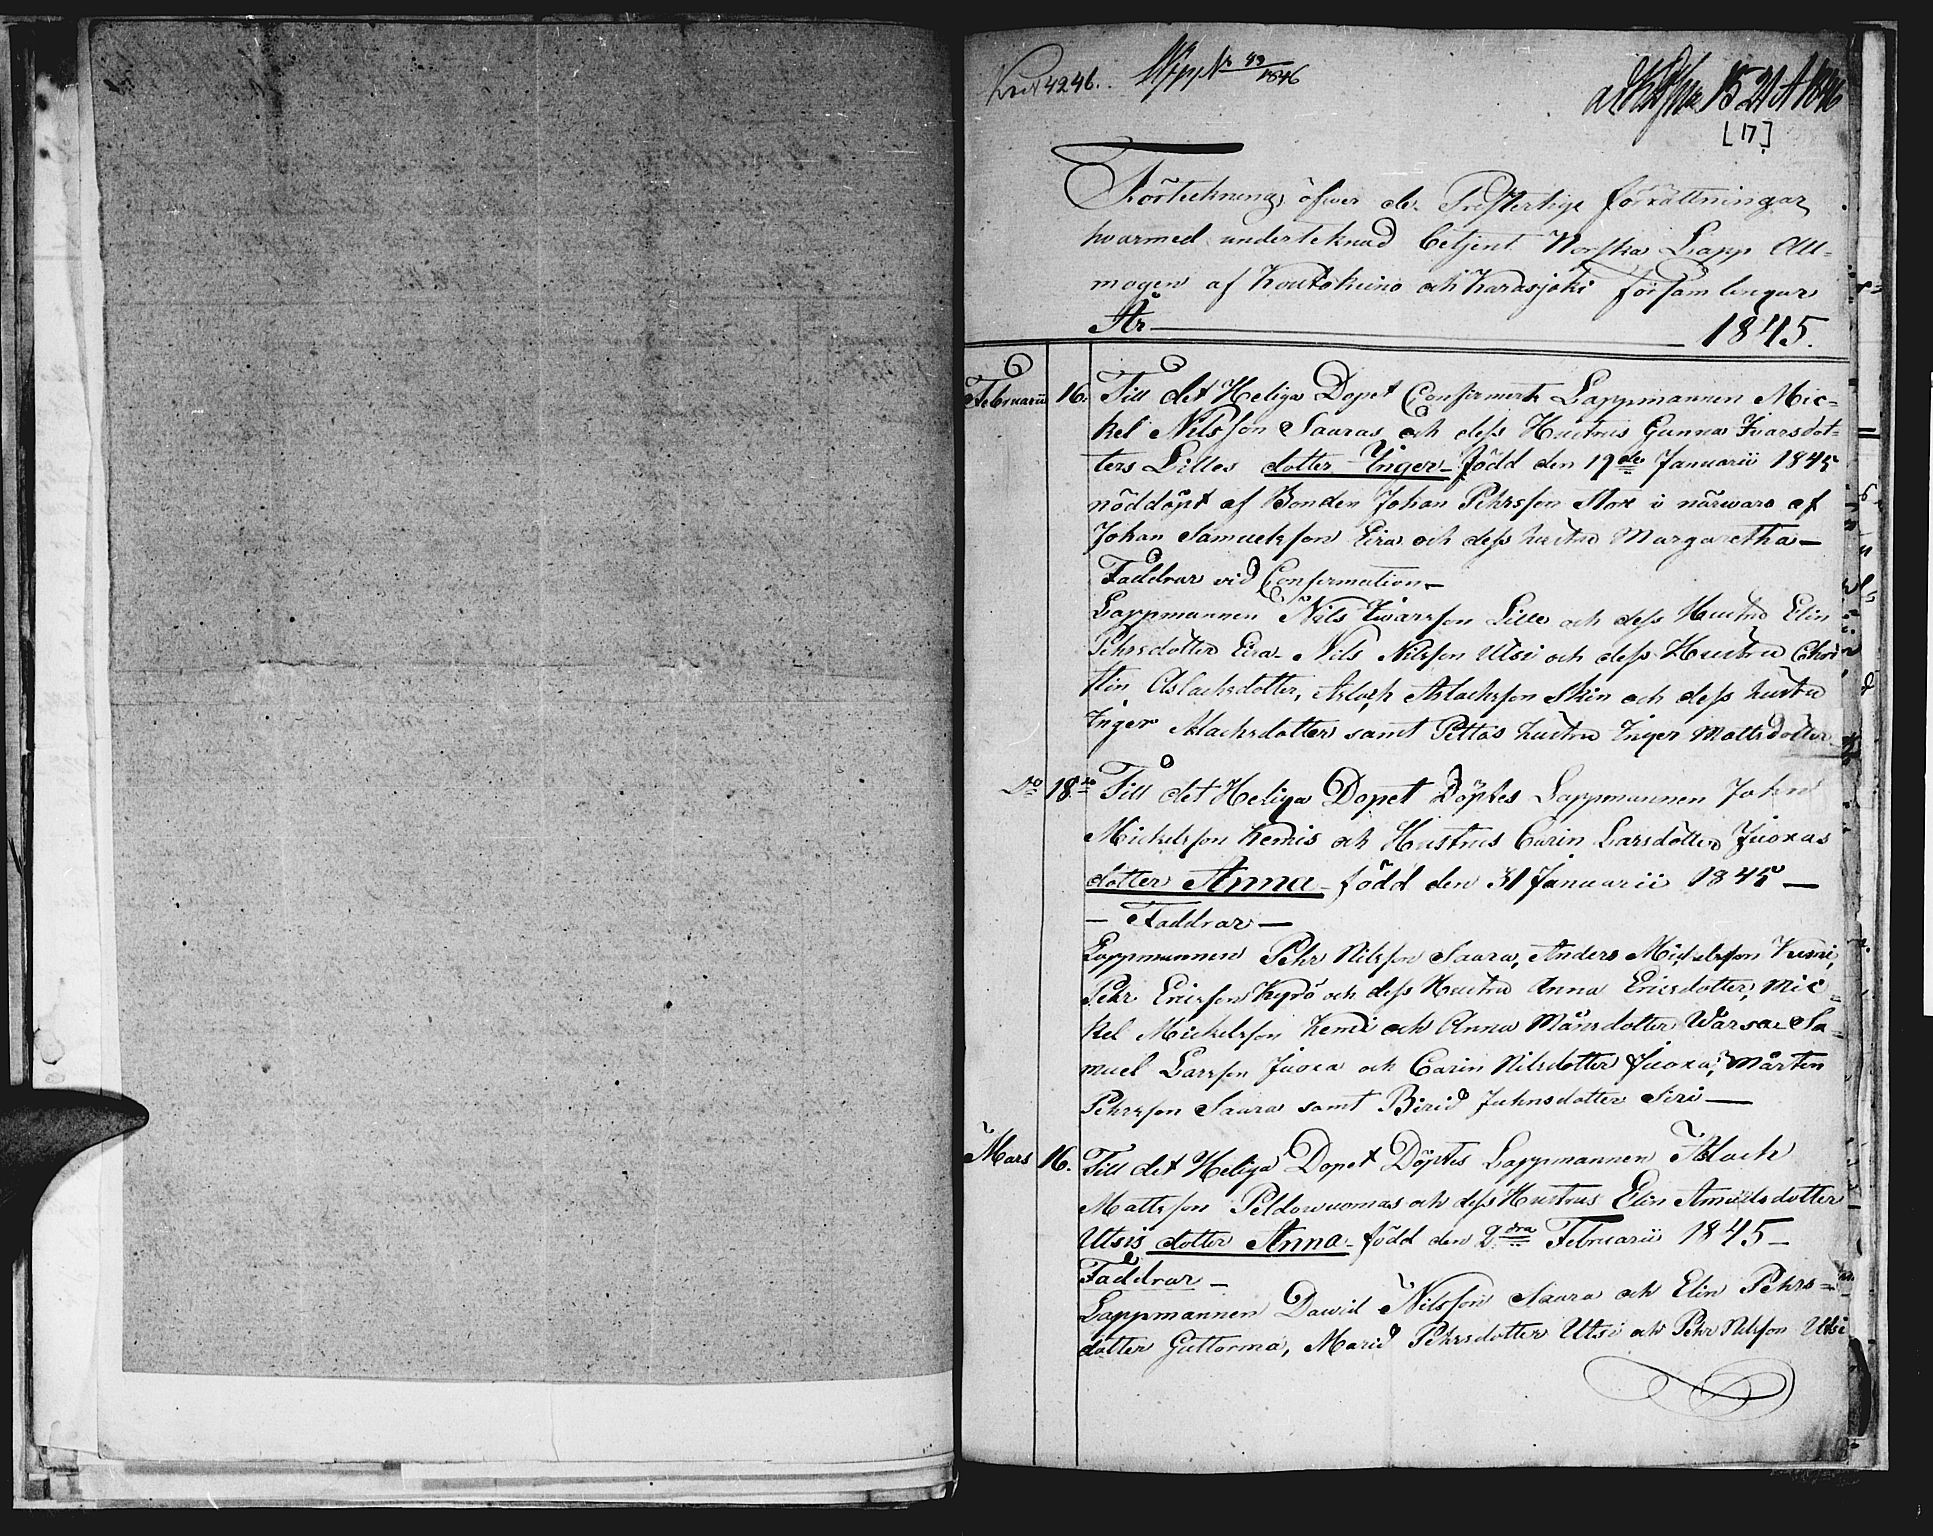 4246. 49/1846
15 21 1846
[17]
Förteckning öfwer de Presterlige förrättningar
hvarmed undertecknad betjent Norska Lapp All-
mogen af Koutokeino och Karasjoki församlingar
År 1845.
Februarii 16. Till det Heliga Dopet Confirmerts Lappmannen Mic-
kel Nilsson Sauras och dess Hustrus Gunna Ivarsdot-
ters Lilles dotter Inger född den 19de Januarii 1845
nöddöpt af Bonden Johan Pehrsson Stox i närwaro af
Johan Samuelsson Eira och dess hustru Margaretha—
Faddrar vid Confirmation—
Lappmannen Nils Iwarsson Lille och dess Hustru Elin
Pehrsdotter Eira- Nils Nilsson Utsi och dess Hustru Chri
stin Aslachsdotter, Aslach Aslachsson Skin och dess hustru
Inger Aslachsdotter samt Pettas hustru Inger Mattsdotter
Do 18de Till det Heliga Dopet Döptes Lappmannen John
Mickelsson Kemis och Hustrus Carin Larsdotter Juoxas
dotter Anna- född den 31 Januarii 1845—
— Faddrar—
Lappmannen Pehr Nilsson Saura, Anders Mickelsson Kemi,
Pehr Ericsson Kyrö och dess Hustru Anna Ericsdotter, Mic-
kel Mickelsson Kemi och Anna Månsdotter Warsa- Sa-
muel Larsson Juoxa och Carin Nilsdotter Juoxa, Mårten
Pehrsson Saura samt Birid Juhnsdotter Siri—
Mars 16. Till det Heliga Dopet Döptes Lappmannen Aslach
Mattsson Peldowuomas och dess Hustrus Elin Amundsdotter
Utsis dotter Anna- född den 2dra Februarii 1845—
Faddrar—
Lappmannen Dawid Nilsson Saura och Elin Pehrs-
dotter Guttorma, Marid Pehrsdotter Utsi och Pehr Nilsson Utsi